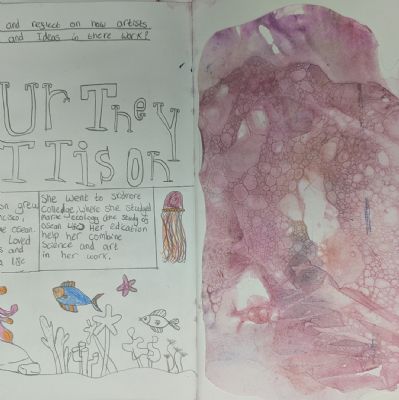 and reflect on how artists
and Ideas in there work?
UrTney
TTison
on grew
ncisco.
e ocean.
Loved
s and
a life
She went to skidmore
Colledge, where she studied
marie ecology (the study of
ocean life) Her edcation
help her combine
Science and art
in her work.